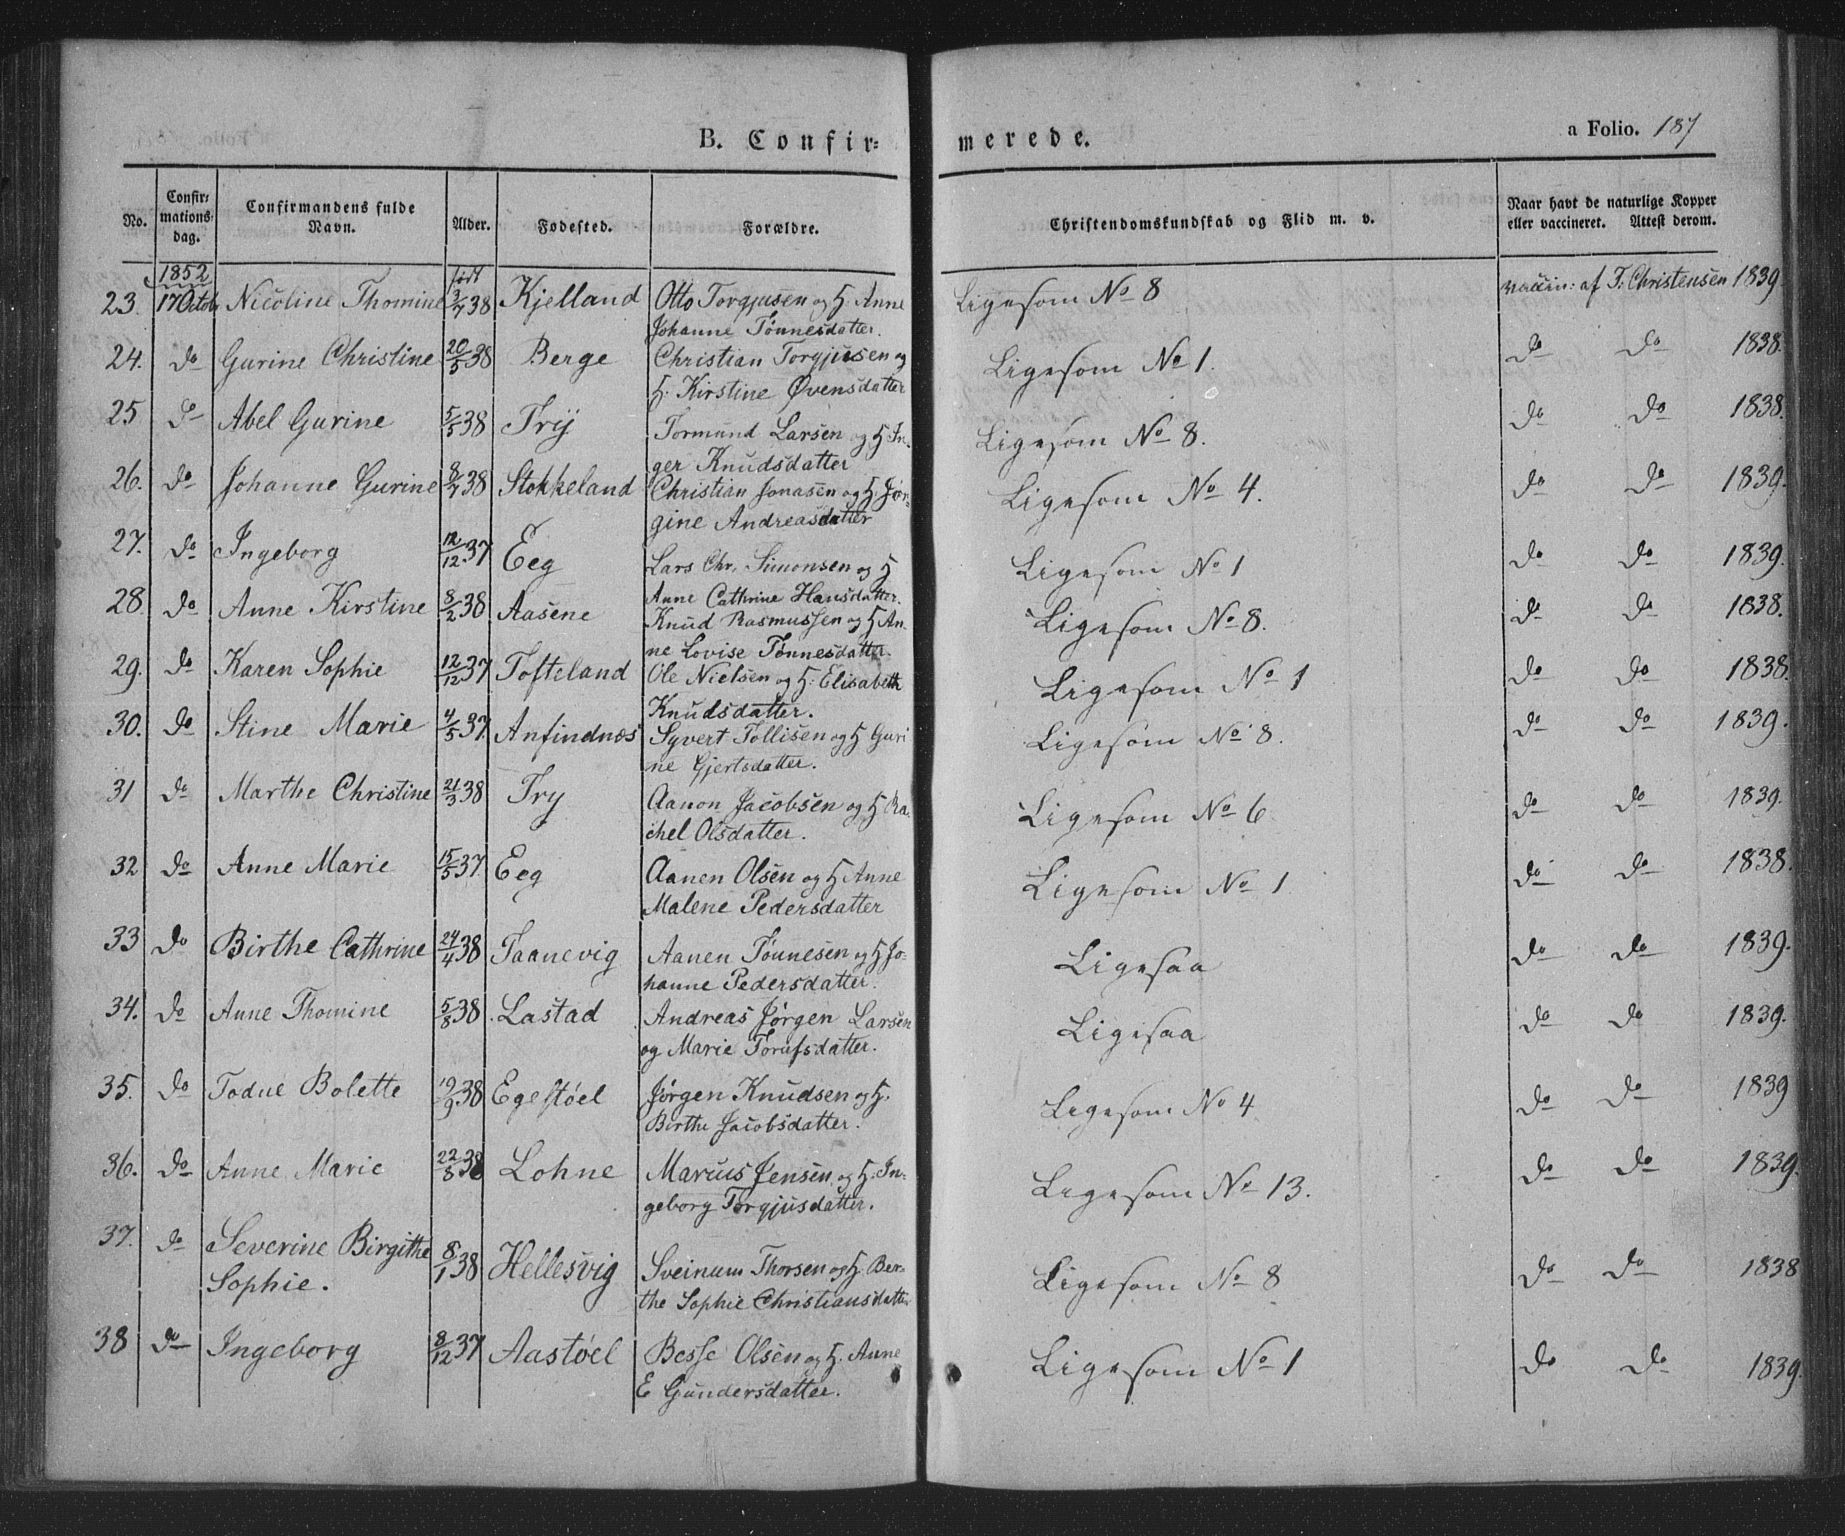 B. Confir=
merede.
a Folio. 187
No.
Confir=
mations=
dag.
Confirmandens fulde
Navn.
Alder.
Fødested.
Forældre.
Christendomskundskab og Flid m. v.
Naar havt de naturlige Kopper
eller vaccineret. Attest derom.
1852 født
23. 17 Octob Nicoline Thomine 3/7 38 Kjelland Otto Torgjusen og H. Anne Ligesom No 8 vaccin: af T: Christensen 1839.
Johanne Tønnesdatter.
24. do Gurine Christine 20/5 38 Berge Christian Torgjusen og Ligesom No 1. do do 1838.
H. Kirstine Øvensdatter
25 do Abel Gurine 5/5 38 Try Tormund Larsen og H In- Ligesom No 8. do do 1838.
ger Knudsdatter
26. do Johanne Gurine 8/7 38 Stokkeland Christian Jonasen og H. Jør- Ligesom No 4. do do 1839.
gine Andreasdatter
27. do Ingeborg 12/12 37 Eeg Lars Chr. Simonsen og H Ligesom No 1 do do 1839.
Anne Cathrine Hansdatter.
28. do Anne Kirstine 8/2 38 Aasene Knud Rasmussen og H An- Ligesom No 8. do do 1838.
ne Lovise Tønnesdatter
29. do Karen Sophie 12/12 37 Tofteland Ole Nielsen og H. Elisabeth Ligesom No 1 do do 1838.
Knudsdatter.
30. do Stine Marie 4/5 37 Anfindnæs Syvert Tollisen og H Guri Ligesom No 8. do do 1839.
ne Gjertsdatter.
31 do Marthe Christine 21/3 38 Try Aanon Jacobsen og H Ra- Ligesom No 6 do do 1839.
chel Olsdatter.
32 do Anne Marie 15/5 37. Eeg Aanen Olsen og H Anne Ligesom No 1. do do 1838.
Malene Pedersdatter
33 do Birthe Cathrine 24/4 38 Taanevig Aanen Tønnesen og H Jo- Ligesaa do do 1839.
hanne Pedersdatter.
34. do Anne Thomine 5/8 38. Lastad Andreas Jørgen Larsen Ligesaa do do 1839.
og Marie Torufsdatter.
35. do Todne Bolette 19/9 38 Egestøel Jørgen Knudsen og H. Ligesom No 4 do do 1839
Birthe Jacobsdatter.
36. do Anne Marie 22/8 38 Lohne Marcus Jensen og H. In- Ligesom No 13. do do 1839.
geborg Torgjusdatter.
37. do Severine Birgithe 8/1 38 Hellesvig Sveinum Thorsen og H. Ber- Ligesom No 8 do do 1838
Sophie. the Sophie Christiansdatter
38 do Ingeborg 8/12 37 Aastøel Besse Olsen og H. Anne Ligesom No 1 do do 1839.
E Gundersdatter.